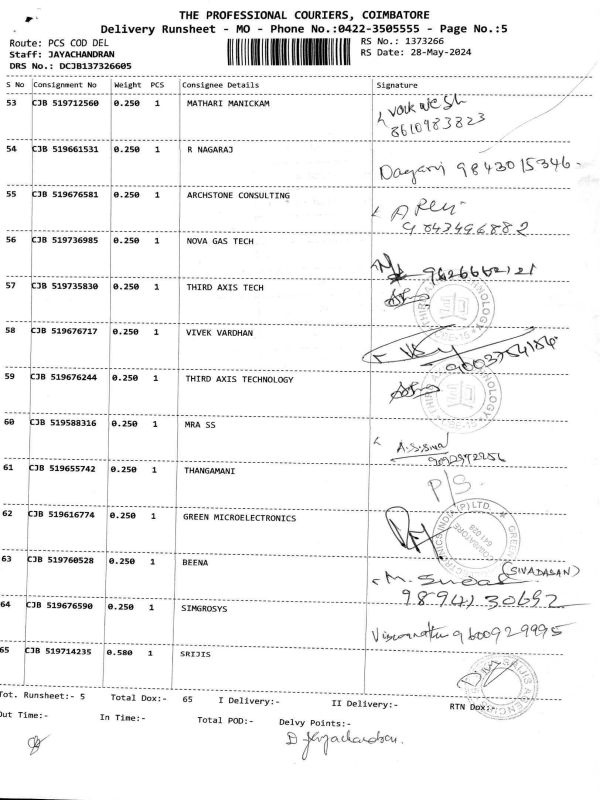 THE PROFESSIONAL COURIERS, COIMBATORE
Delivery Runsheet - MO - Phone No.:0422-3505555 - Page No.:5
Route: PCS COD DEL RS No.: 1373266
Staff: JAYACHANDRAN RS Date: 28-May-2024
DRS No.: DCJB137326605
S No Consignment No Weight PCS Consignee Details Signature
53 CJB 519712560 0.250 1 MATHARI MANICKAM
8610983823
54 CJB 519661531 0.250 1 R NAGARAJ
9843015346
55 CJB 519676581 0.250 1 ARCHSTONE CONSULTING
9843496882
56 CJB 519736985 0.250 1 NOVA GAS TECH
9626662121
57 CJB 519735830 0.250 1 THIRD AXIS TECH
58 CJB 519676717 0.250 1 VIVEK VARDHAN
9003754184
59 CJB 519676244 0.250 1 THIRD AXIS TECHNOLOGY
60 CJB 519588316 0.250 1 MRA SS
A.S.Siva
61 CJB 519655742 0.250 1 THANGAMANI
P/S
62 CJB 519616774 0.250 1 GREEN MICROELECTRONICS
63 CJB 519760528 0.250 1 BEENA
(SIVADASAN)
M.
9894130692
64 CJB 519676590 0.250 1 SIMGROSYS
Viswanathan 9600929995
65 CJB 519714235 0.580 1 SRIJIS
Tot. Runsheet:- 5 Total Dox:- 65 I Delivery:- II Delivery:- RTN Dox:-
Out Time:- In Time:- Total POD:- Delvy Points:-
D Jayachandran.